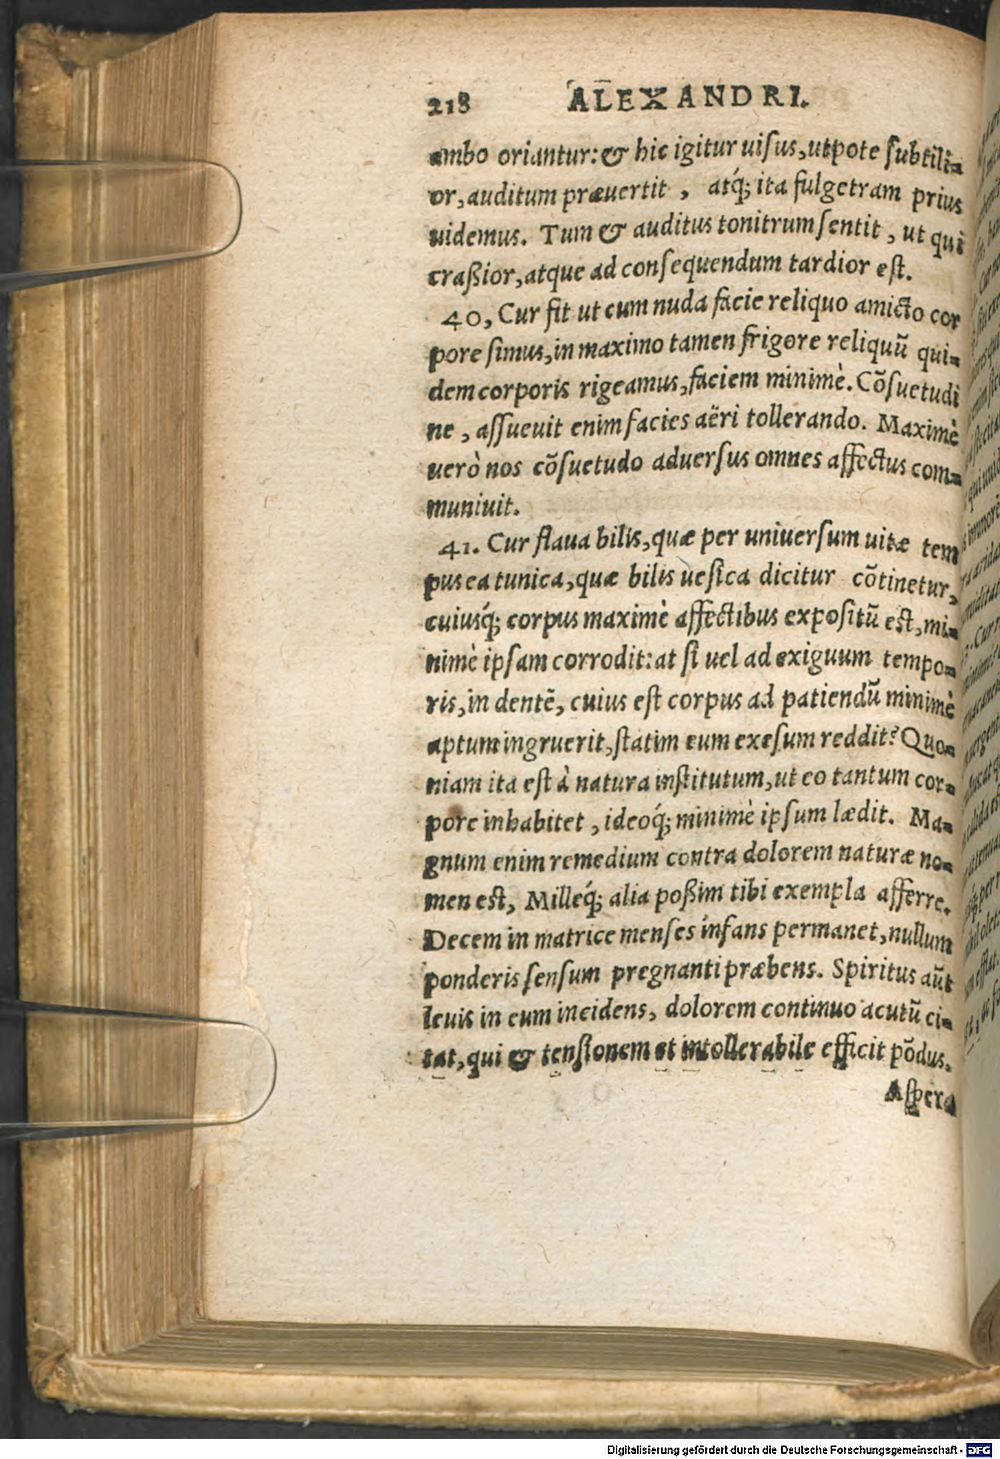 218 ALEXANDRI.
ambo oriantur: & hic igitur uiſus, utpote ſubtili-
or, auditum præuertit, atq́; ita fulgetram prius
uidemus. Tum & auditus tonitrum ſentit, ut qui
craßior, atque ad conſequendum tardior eſt.
40, Cur fit ut cum nuda facie reliquo amicto cor
pore ſimus, in maximo tamen frigore reliquũ qui-
dem corporis rigeamus, faciem minimè. Cõſuetudi
ne, aſſueuit enim facies aëri tollerando. Maximè
uerò nos cõſuetudo aduerſus omnes affectus com-
muniuit.
41. Cur flaua bilis, quæ per uniuerſum uitæ tem
pus ea tunica, quæ bilis ueſica dicitur cõtinetur,
cuiusq́; corpus maximè affectibus expoſitũ eſt, mi-
nimè ipſam corrodit: at ſi uel ad exiguum tempo-
ris, in dentẽ, cuius eſt corpus ad patiendũ minimè
aptum ingruerit, ſtatim eum exeſum reddit? Quo-
niam ita eſt à natura inſtitutum, ut eo tantum cor-
pore inhabitet, ideoq́; minimè ipſum lædit. Ma-
gnum enim remedium contra dolorem naturæ no-
men eſt, Milleq́; alia poßim tibi exempla afferre.
Decem in matrice menſes infans permanet, nullum
ponderis ſenſum pregnanti præbens. Spiritus aũt
leuis in eum incidens, dolorem continuo acutũ ci-
tat, qui & tenſionem et intollerabile efficit põdus.
Aſpera
Digitalisierung gefördert durch die Deutsche Forschungsgemeinschaft - DFG